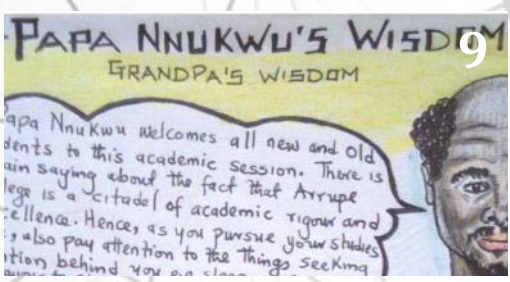 PAPA NNUKWU'S WISDOM
9
GRANDPA'S WISDOM
apa Nnukwu welcomes all new and old
dents to this academic session. There is
ain saying about the fact that Arrupe
lege is a citadel of academic rigour and
cellence. Hence, as you pursue your studies
, also pay attention to the things seeking
tion behind you e.g